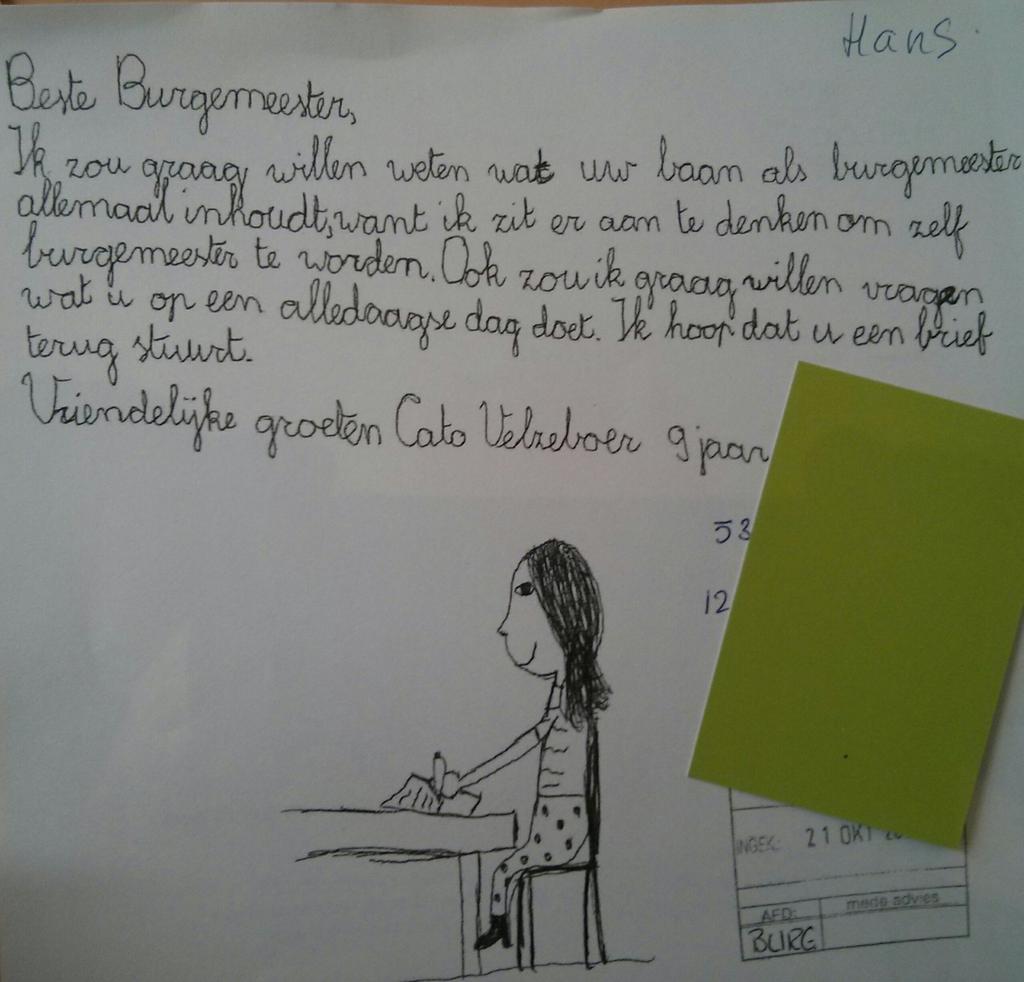 Hans
Beste Burgemeester,
Ik zou graag willen weten wat uw baan als burgemeester
allemaal inhoudt, want ik zit er aan te denken om zelf
burgemeester te worden. Ook zou ik graag willen vragen
wat u op een alledaagse dag doet. Ik hoop dat u een brief
terug stuurt.
Vriendelijke groeten Cato Velzeboer 9 jaar
53
12
INGEK: 21 OKT
AFD: mede advies
BURG